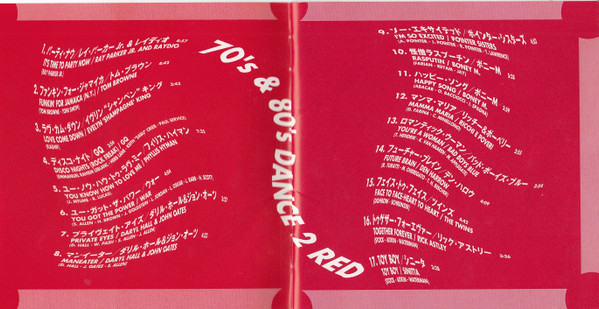 1. パーティ・ナウ/レイ・パーカー Jr. & レイディオ
IT'S TIME TO PARTY NOW / RAY PARKER JR. AND RAYDIO
(RAY PARKER JR.)
2. ファンキン・フォー・ジャマイカ/トム・ブラウン
FUNKIN' FOR JAMAICA (N.Y.) / TOM BROWNE
(TOM BROWNE・TONI SMITH)
3. ラヴ・カム・ダウン/イヴリン"シャンペン"キング
LOVE COME DOWN / EVELYN "CHAMPAGNE" KING
(KASHIF)
4. ディスコ・ナイト/GQ
DISCO NIGHTS (ROCK FREAK) / GQ
5. ユー・ノウ・ハウ・トゥ・ラヴ・ミー/フィリス・ハイマン
YOU KNOW HOW TO LOVE ME / PHYLLIS HYMAN
(J. MTUME・R. LUCAS)
6. ユー・ガット・ザ・パワー/ウォー
YOU GOT THE POWER / WAR
7. プライヴェイト・アイズ/ダリル・ホール&ジョン・オーツ
PRIVATE EYES / DARYL HALL & JOHN OATES
(D. HALL・W. PASH・S. ALLEN・J. ALLEN)
8. マンイーター/ダリル・ホール&ジョン・オーツ
MANEATER / DARYL HALL & JOHN OATES
(D. HALL・J. OATES・S. ALLEN)
70's & 80's DANCE 2 RED
9. ソー・エキサイテッド/ポインター・シスターズ
I'M SO EXCITED / POINTER SISTERS
(A. POINTER・J. POINTER・R. POINTER・T. LAWRENCE)
10. 怪僧ラスプーチン/ボニーM
RASPUTIN / BONEY M.
(FARIAN・REYAM・JAY)
11. ハッピー・ソング/ボニーM
HAPPY SONG / BONEY M.
12. マンマ・マリア/リッチ・エ・ポーベリ
MAMMA MARIA / RICCHI E POVERI
(D. FARINA・C. MINELLONO)
13. ロマンティック・ウーマン/バッド・ボーイズ・ブルー
YOU'RE A WOMAN / BAD BOYS BLUE
14. フューチャー・ブレイン/デン・ハロウ
FUTURE BRAIN / DEN HARROW
15. フェイス・トゥ・フェイス/ツインズ
FACE TO FACE-HEART TO HEART / THE TWINS
16. トゥゲザー・フォーエヴァー/リック・アストリー
TOGETHER FOREVER / RICK ASTLEY
(STOCK・AITKEN・WATERMAN)
17. TOY BOY/シニータ
TOY BOY / SINITTA
(STOCK・AITKEN・WATERMAN)